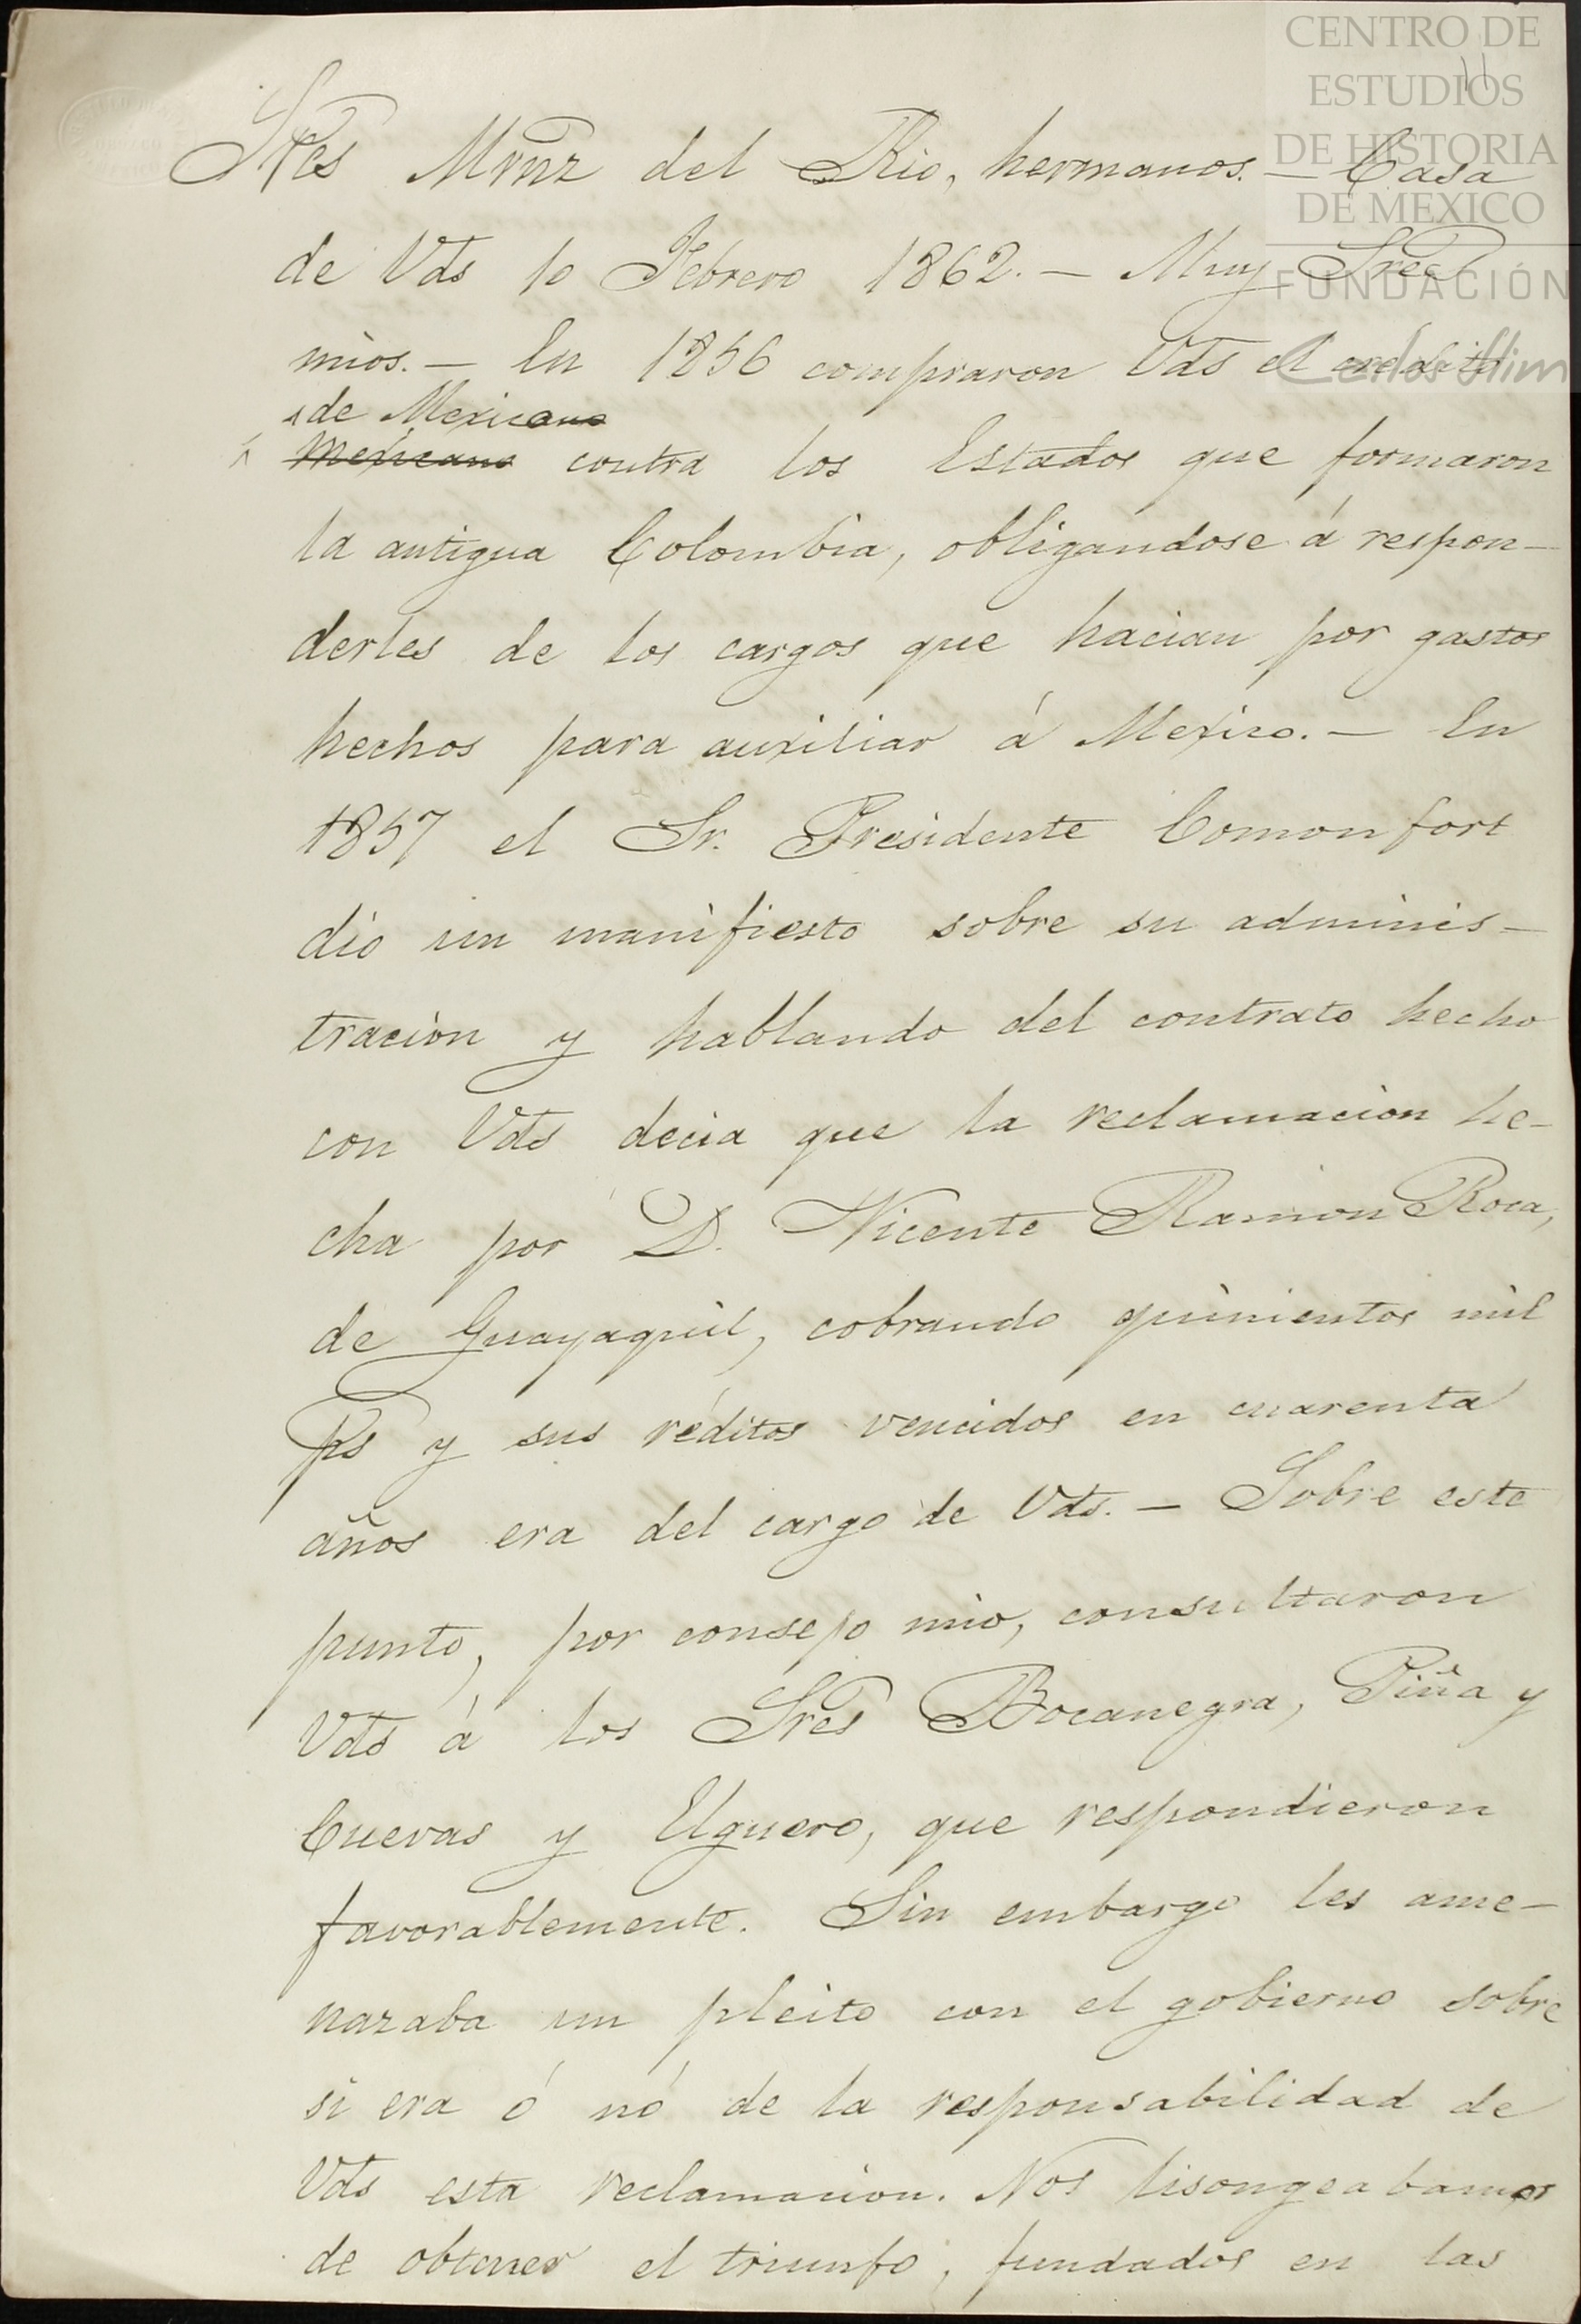 CENTRO DE
ESTUDIOS
DE HISTORIA
DE MEXICO
FUNDACIÓN
Carlos Slim
11
Sres Mrnz del Rio, hermanos. — Casa
de Vds 10 Febrero 1862. — Muy Sres
mios. — En 1856 compraron Vds el credito
de Mexicano
Mexicano contra los Estados que formaron
la antigua Colombia, obligandose á respon-
derles de los cargos que hacian por gastos
hechos para auxiliar á Mexico. — En
1857 el Sr. Presidente Comonfort
dio un manifiesto sobre su adminis-
tracion y hablando del contrato hecho
con Vds decia que la reclamacion he-
cha por D. Vicente Ramon Roca,
de Guayaquil, cobrando quinientos mil
ps y sus réditos vencidos en cuarenta
años era del cargo de Vds. — Sobre este
punto, por consejo mio, consultaron
Vds á los Sres Bocanegra, Piña y
Cuevas y Elguero, que respondieron
favorablemente. Sin embargo les ame-
nazaba un pleito con el gobierno sobre
si era ó nó de la responsabilidad de
Vds esta reclamacion. Nos lisongeabamos
de obtener el triunfo, fundados en las